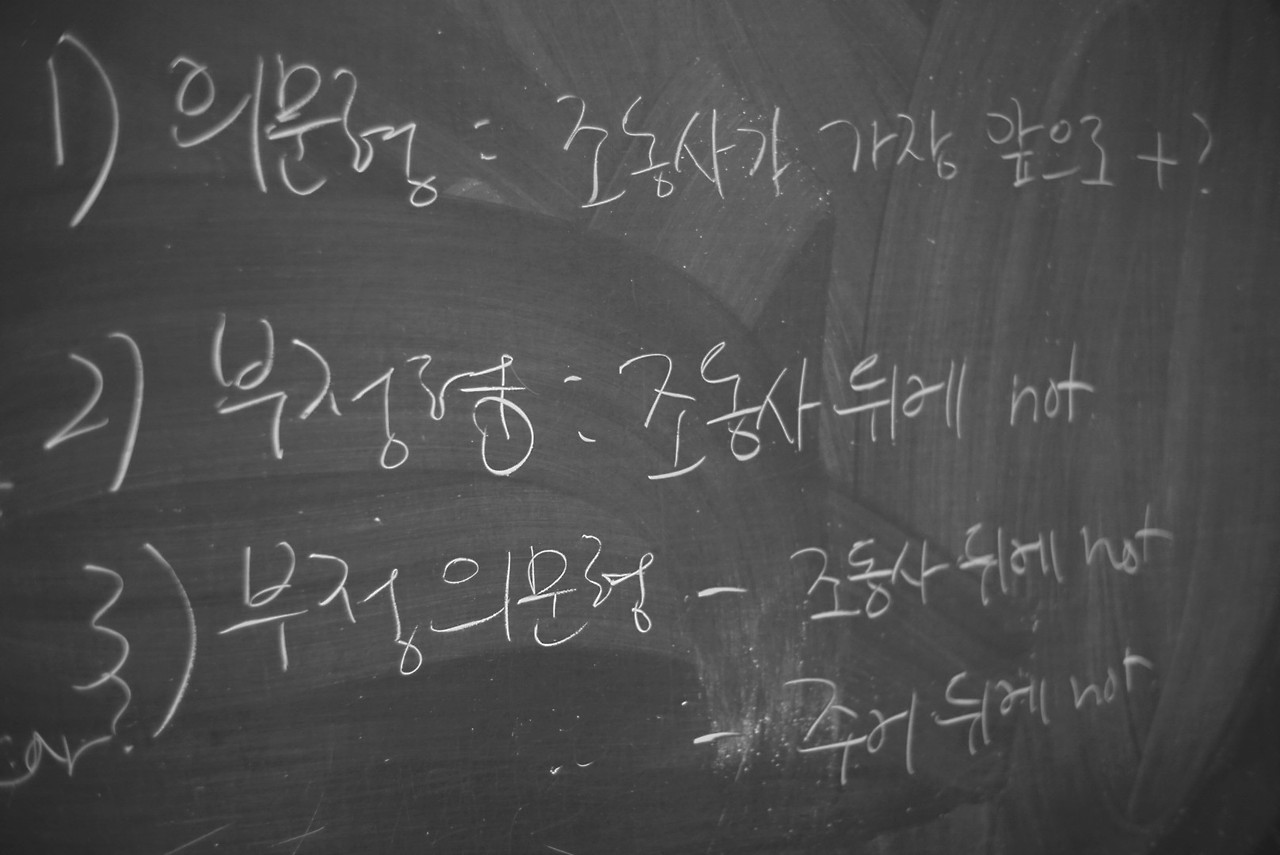 1) 의문형 : 조동사가 가장 앞으로 + ?
2) 부정형 : 조동사 뒤에 not
3) 부정의문형 - 조동사 뒤에 not
- 주어 뒤에 not